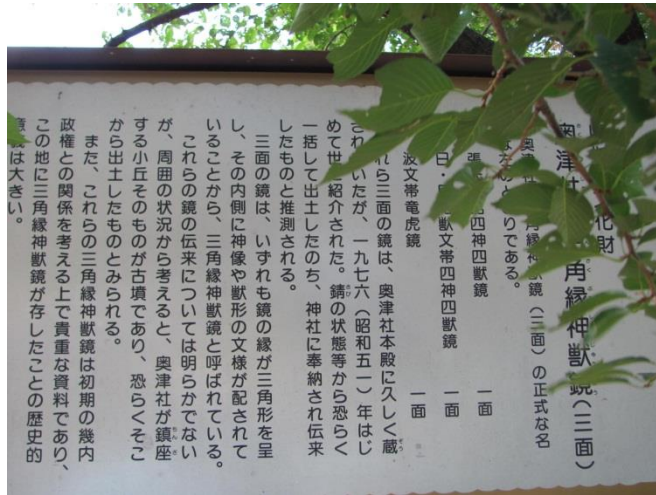 化財
奥津社 角縁神獣鏡(三面)
奥津社 角縁神獣鏡(三面)の正式な名
りである。
四神四獣鏡 一面
獣文帯四神四獣鏡 一面
波文帯竜虎鏡 一面
れら三面の鏡は、奥津社本殿に久しく蔵
されていたが、一九七六(昭和五一)年はじ
めて世に紹介された。錆の状態等から恐らく
一括して出土したのち、神社に奉納され伝来
したものと推測される。
三面の鏡は、いずれも鏡の縁が三角形を呈
し、その内側に神像や獣形の文様が配されて
いることから、三角縁神獣鏡と呼ばれている。
これらの鏡の伝来については明らかでない
が、周囲の状況から考えると、奥津社が鎮座
する小丘そのものが古墳であり、恐らくそこ
から出土したものとみられる。
また、これらの三角縁神獣鏡は初期の畿内
政権との関係を考える上で貴重な資料であり、
この地に三角縁神獣鏡が存したことの歴史的
意義は大きい。